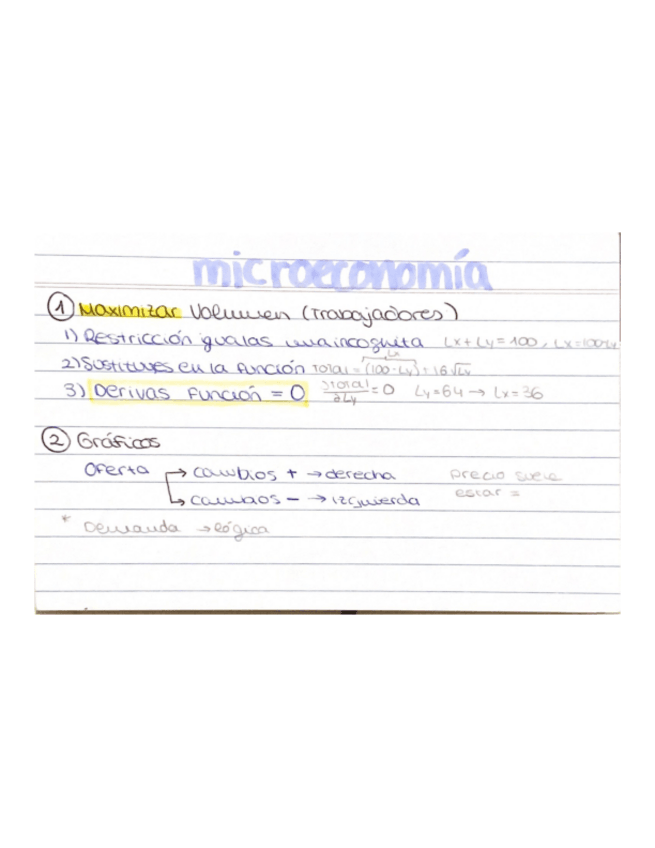 microeconomía
① Maximizar Volumen (Trabajadores)
1) Restricción igualas una incognita Lx + Ly = 100, Lx = 100-Ly
Lx
2) Sustituyes en la función Total = (100-Ly) + 16√Ly
3) Derivas función = 0 ∂Total/∂Ly = 0 Ly = 64 → Lx = 36
② Gráficos
Oferta → cambios + → derecha precio suele
↳ cambios - → izquierda estar =
* Demanda → lógica